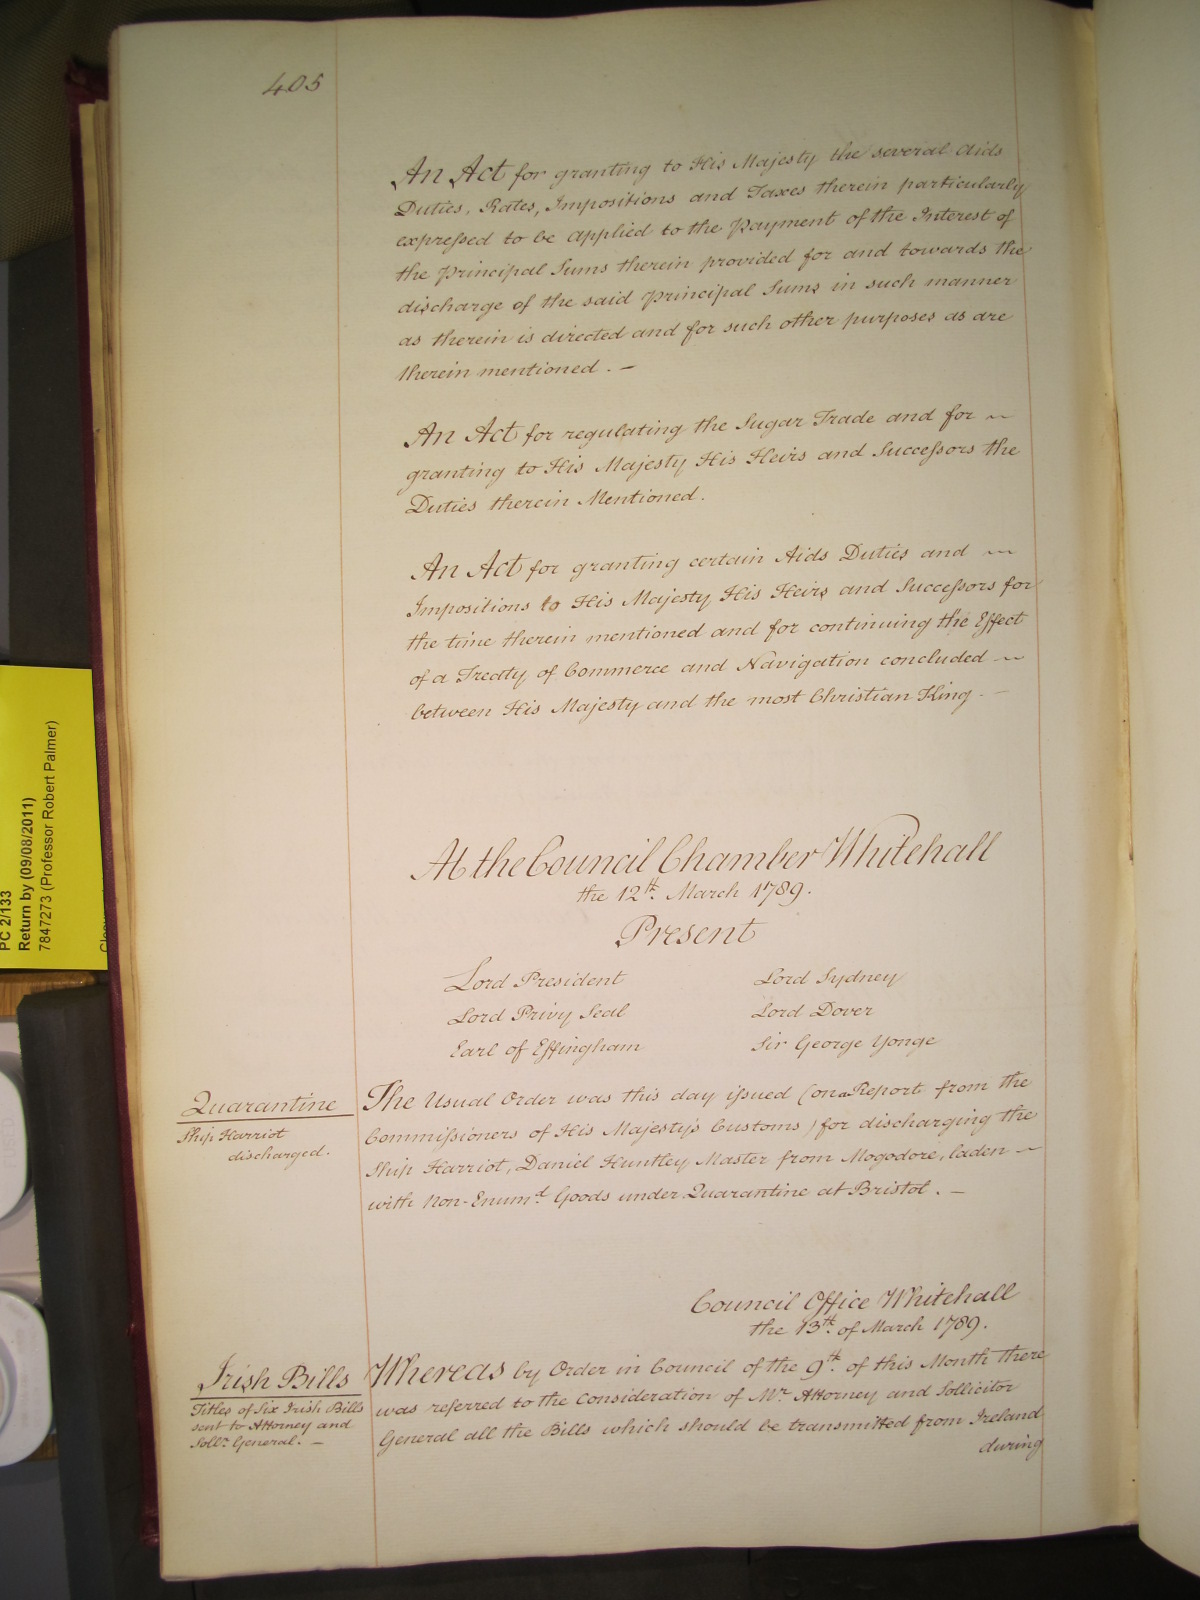 405
An Act for granting to His Majesty the several Aids
Duties, Rates, Impositions and Taxes therein particularly
expressed to be applied to the Payment of the Interest of
the Principal Sums therein provided for and towards the
discharge of the said Principal Sums in such manner
as therein is directed and for such other purposes as are
therein mentioned. —
An Act for regulating the Sugar Trade and for ~
granting to His Majesty His Heirs and Successors the
Duties therein Mentioned.
An Act for granting certain Aids Duties and ~
Impositions to His Majesty His Heirs and Successors for
the time therein mentioned and for continuing the Effect
of a Treaty of Commerce and Navigation concluded ~
between His Majesty and the most Christian King. —
At the Council Chamber Whitehall
the 12th. March 1789.
Present
Lord President Lord Sydney
Lord Privy Seal Lord Dover
Earl of Effingham Sir George Yonge
Quarantine
Ship Harriot
discharged.
The Usual Order was this day issued (on a Report from the
Commissioners of His Majesty's Customs) for discharging the
Ship Harriot, Daniel Huntley Master from Mogodore, laden ~
with Non-Enumd. Goods under Quarantine at Bristol. —
Council Office Whitehall
the 13th. of March 1789.
Irish Bills
Titles of Six Irish Bills
sent to Attorney and
Sollr. General. —
Whereas by Order in Council of the 9th. of this Month there
was referred to the Consideration of Mr. Attorney and Sollicitor
General all the Bills which should be transmitted from Ireland
during
PC 2/133
Return by (09/08/2011)
7847273 (Professor Robert Palmer)